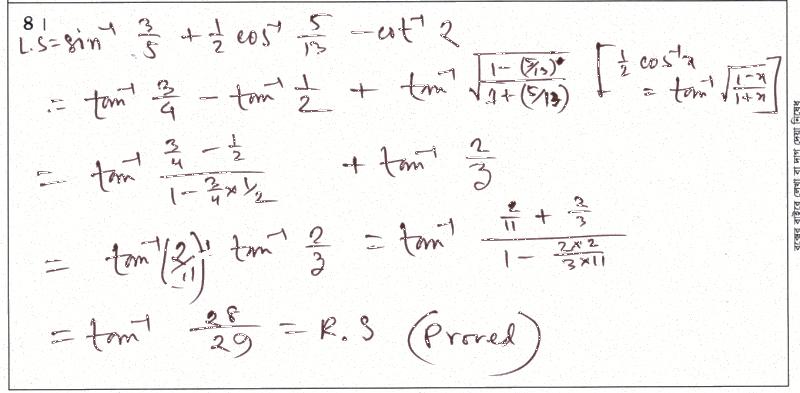 8|
L.S = sin⁻¹ 3/5 + 1/2 cos⁻¹ 5/13 − cot⁻¹ 2
= tan⁻¹ 3/4 − tan⁻¹ 1/2 + tan⁻¹ √((1 − (5/13))/(1 + (5/13))) [1/2 cos⁻¹x = tan⁻¹ √((1−x)/(1+x))]
= tan⁻¹ (3/4 − 1/2)/(1 − 3/4 × 1/2) + tan⁻¹ 2/3
= tan⁻¹(2/11) tan⁻¹ 2/3 = tan⁻¹ (2/11 + 2/3)/(1 − (2×2)/(3×11))
= tan⁻¹ 28/29 = R.S (Proved)